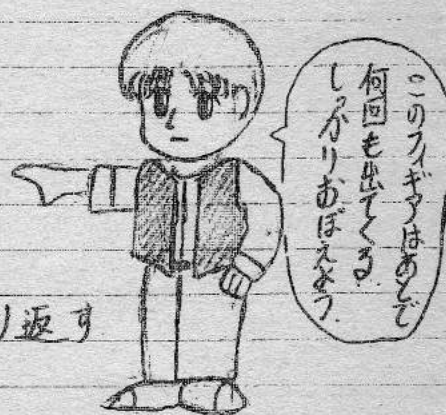 このフィギアはあとで
何回も出てくる
しっかりおぼえよう.
り返す